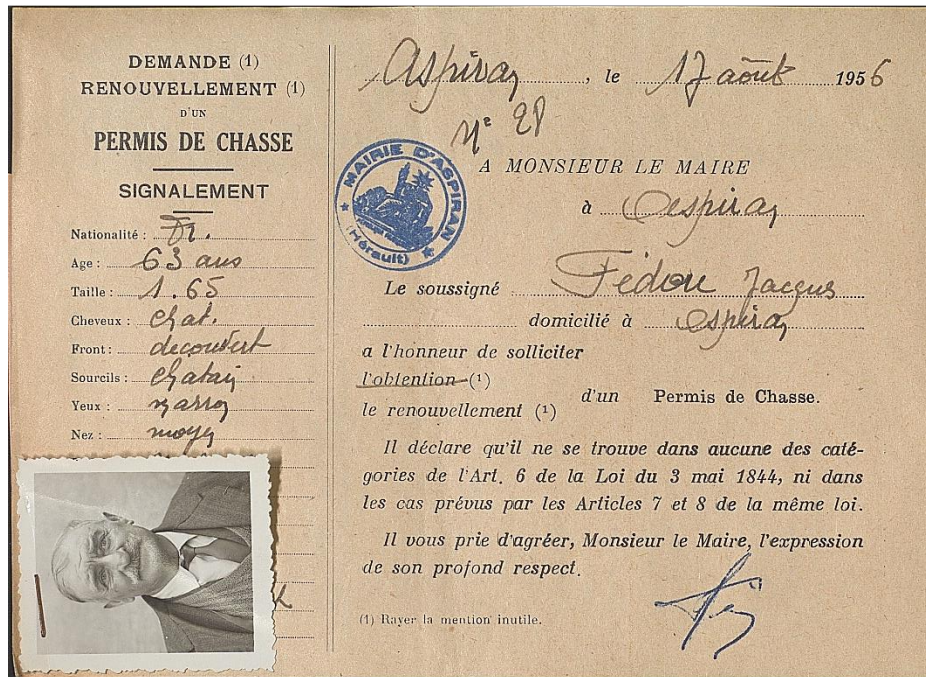 DEMANDE (1)
RENOUVELLEMENT (1)
D'UN
PERMIS DE CHASSE
SIGNALEMENT
Nationalité : Fr.
Age : 63 ans
Taille : 1.65
Cheveux : chat.
Front : decouvert
Sourcils : chatain
Yeux : marron
Nez : moyen
Aspiran, le 17 août 1956
N° 28
MAIRIE D'ASPIRAN
(Hérault)
A MONSIEUR LE MAIRE
à Aspiran
Le soussigné Fédou Jacques
domicilié à Aspiran
a l'honneur de solliciter
l'obtention (1)
le renouvellement (1)
d'un Permis de Chasse.
Il déclare qu'il ne se trouve dans aucune des caté-
gories de l'Art. 6 de la Loi du 3 mai 1844, ni dans
les cas prévus par les Articles 7 et 8 de la même loi.
Il vous prie d'agréer, Monsieur le Maire, l'expression
de son profond respect.
(1) Rayer la mention inutile.